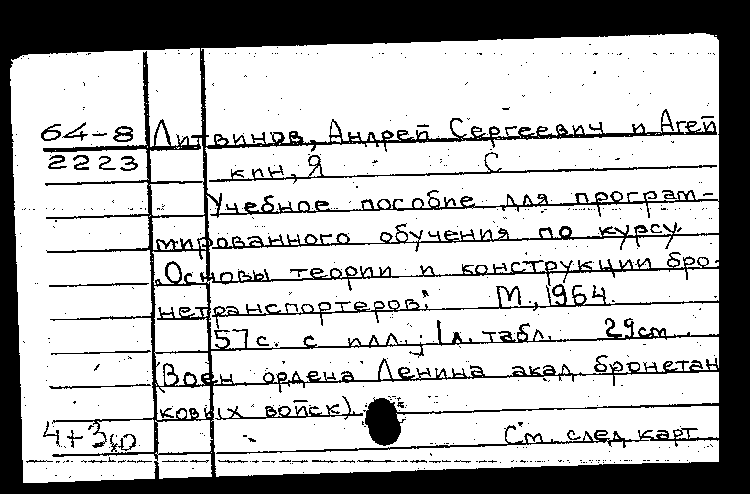 64-8 Литвинов, Андрей Сергеевич и Агей
2223
кин, Я С
Учебное пособие для програм-
мированного обучения по курсу
„Основы теории и конструкции бро-
нетранспортеров." М., 1964.
57с. с илл.; 1л. табл. 29см.
(Воен. ордена Ленина акад. бронетан
ковых войск).
См. след. карт